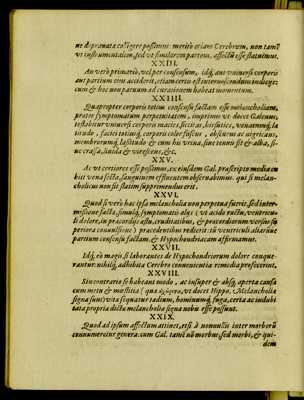 ne depranata colligere possimus: merito etiam Cerebrum, non tamē
vt instrumentalem, sed vt similarem partem, affectū esse statuimus.
XXIII.
An verò primario, vel per consensum, idq́, aut vniuersi corporis
aut partium eius acciderit, etiam certò est internoscendum indicijs:
cum & hoc non paruum ad curationem habeat momentum.
XXIIII.
Quapropter corporis totius consensu factam esse melancholiam,
præter symptomatum perpetuitatem, inprimis vt docet Galenus,
testabitur vniuersi corporis macies, siccitas, hirsuties, venarumq́, la
titudo, faciei totiusq́, corporis color fuscus, obscenæ ac nigricans,
membrorumq́, lassitudo & cum his vrina, sine tennis sit & alba, si-
ue crassa, liuida & virescens, &c.
XXV.
Ac vt certiores esse possimus, ex eiusdem Gal. præscripto media cu
biti vena secta, sanguinem effluentem obseruabimus: qui si melan-
cholicus non sit statim supprimendus erit.
XXVI.
Quod si verò hæc ipsa melancholia non perpetua fuerit, sed inter-
missione facta, simulq́, symptomatis alijs (vt acido ructu, ventricu-
li dolore, in præcordijs æstu, cruditatibus, & præcordiorum vers̀us su
periora conuulsione) præcedentibus redierit: tū ventriculi aliarūue
partium consensu factam, & Hypochondriacam affirmamus.
XXVII.
Idq́, eò magis, si laborantes de Hypochondriorum dolore conque-
rantur: nihilq́, adhibita Cerebro conuenientia remedia profecerint.
XXVIII.
Sin contrario se habeant modo, ac insuper & absq́, aperta causa
cum metu & mœstitia (quæ vt docet Hippo. Melancholiæ
signa sunt) vita sequatur tædium, hominumq́, fuga, certa ac indubi
tata propria dicta melancholiæ signa nobis esse possunt.
XXIX.
Quod ad ipsum affectum attinet, etsi à nonnullis inter morborū
connumeretur genera: cum Gal. tamē nō morbus, sed morbi, & qui-
dem